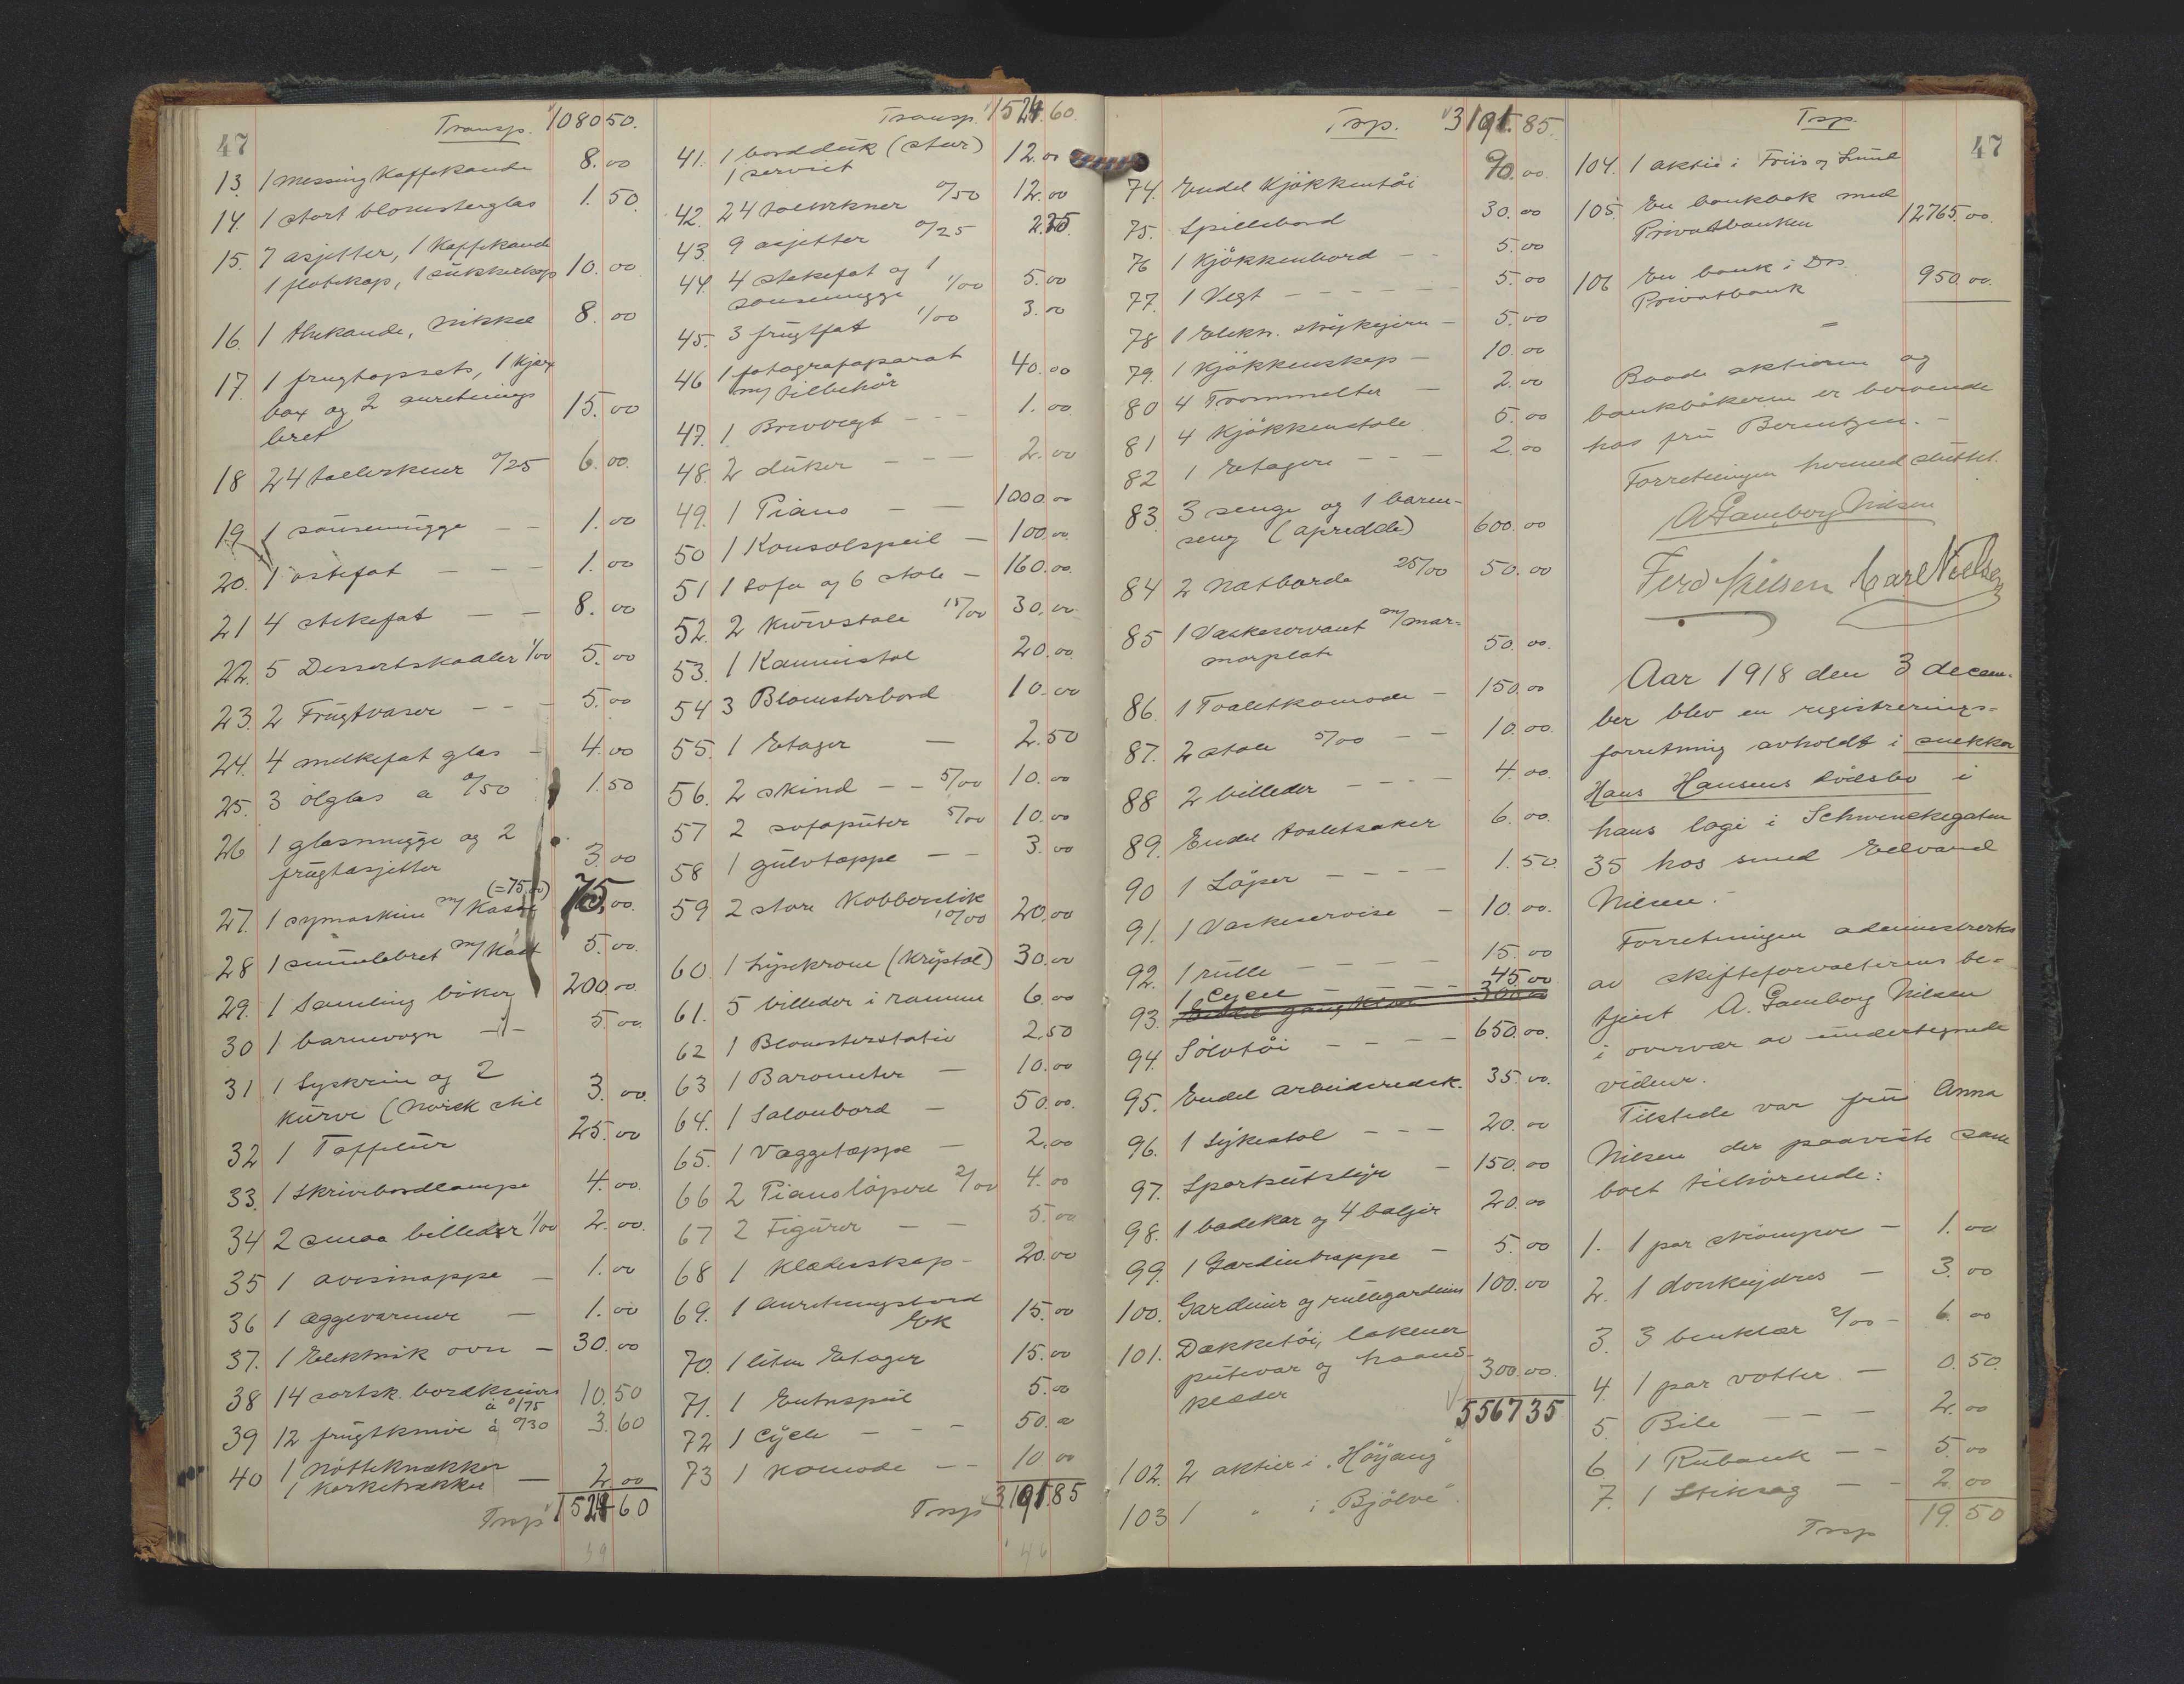 47
Transp. 1080 50.
13. 1 messing Kaffekande 8.00
14. 1 stort blomsterglas 1.50.
15. 7 asjetter, 1 Kaffekande
1 flötekop, 1 sukkerkop 10.00
16. 1 thekande, nikkel 8.00
17. 1 frugtopsats, 1 kjex
box og 2 anretnings
bret 15.00
18 24 tallerkner 0/25 6.00.
19 1 sausemugge - - 1.00
20. 1 ostefat - - - 1.00
21 4 stekefat - - 8.00
22. 5 Dessertskaaler 1/00 5.00
23. 2 Frugtvaser - - - 5.00
24. 4 melkefat glas - 4.00
25. 3 ölglas a 0/50 1.50
26 1 glasmugge og 2
frugtasjetter 3.00
(=75,00)
27. 1 symaskine m/ Kasse 75.00.
28 1 smulebret m/ Kost 5.00.
29. 1 Samling böker 200.00.
30 1 barnevogn - - 5.00.
31 1 Syskrin og 2
kurve (norsk stil 3.00.
32 1 Taffelur 25.00
33. 1 skrivebordlampe 4.00.
34 2 smaa billeder 1/00 2.00.
35 1 avismappe - 1.00
36 1 æggevarmer - 1.00
37. 1 Elektrisk ovn - 30.00
38 14 sortsk. bordkniver
à 0/75 10.50
39 12 frugtknive à 0/30 3.60
40 1 Nötteknækker
1 Korketrækker - 2.00
Trsp 1524 60
39
Transp. 1524.60.
41. 1 bordduk (stor)
1 serviet 12.00
42. 24 tallerkner 0/50 12.00
43. 9 asjetter 0/25 2.25.
44. 4 stekefat og 1
sausemugge 1/00 5.00
45. 3 frugtfat 1/00 3.00
46 1 fotografapparat
m/ tilbehör 40.00
47. 1 Brevvegt - - 1.00.
48. 2 duker - - - 2.00
49. 1 Piano - - 1000.00
50 1 Konsolspeil - 100.00.
51 1 Sofa og 6 stole - 160.00.
52. 2 Kurvstole 15/00 30.00
53. 1 Kaministol 20.00.
54 3 Blomsterbord 10.00
55. 1 Etager - 2.50
56. 2 skind - - 5/00 10.00
57 2 sofaputer 5/00 10.00
58 1 gulvtæppe - - 3.00
59 2 store Kobberstik
10/00 20.00
60. 1 Lysekrone (Krystal) 30.00
61. 5 billeder i ramme 6.00
62 1 Blomsterstativ 2.50
63 1 Barometer - 10.00
64. 1 Salonbord - 50.00.
65. 1 Væggetæppe - 2.00
66 2 Pianolöpere 2/00 4.00
67 2 Figurer - - 5.00
68 1 Klædesskap - 20.00
69. 1 Anretningsbord
Ek 15.00
70. 1 liten Etager 15.00
71. 1 Entrespeil 5.00
72 1 Cycle - - 50.00
73 1 Komode - - 10.00
Trsp 3191.85
46
Trsp. 3191.85.
74. Endel Kjökkentöi 90.00.
75. Spillebord 30.00
76 1 Kjökkenbord - - 5.00
77. 1 Vegt - - - - - - 5.00
78 1 Elektr. strykejern - 5.00
79. 1 Kjökkenskap - 10.00
80 4 Trommelter - 2.00
81 4 Kjökkenstole 5.00
82 1 Etagere - - - 2.00
83. 3 senge og 1 barne-
seng (opredde) 600.00
84 2 Natborde 25/00 50.00
85 1 Vaskeservant m/ mar-
morplate 50.00.
86. 1 Toaletkomode - 150.00
87. 2 stole 5/00 - - 10.00.
88 2 billeder - - - - 4.00.
89. Endel toaletsaker 6.00.
90 1 Löper - - - - 1.50.
91. 1 Vaskeservise - 10.00.
92. 1 rulle - - - - 15.00
1 Cycle - - - - - 45.00
93. Endel gangklær 300.00
94. Sölvtöi - - - - 650.00.
95. Endel arbeideredsk. 35.00.
96. 1 Sykestol - - - 20.00
97. Sportsutstyr - 150.00
98. 1 badekar og 4 baljer 20.00
99. 1 Gardintrappe - 5.00
100. Gardiner og rullegardiner 100.00
101. Dækketöi, lakener
putevar og haand-
klæder 300.00.
5567 35
102. 2 aktier i "Höyang"
103 1 " i "Bjölve".
Trsp.
47
104. 1 aktie i Friis og Lund
105. En bankbok med
Privatbanken 12765.00.
106 En bank i Drs
Privatbank 950.00.
-
Baade aktierne og
bankbökerne er beroende
hos fru Berentzen. -
Forretningen hermed sluttet.
A Gamborg Nilsen
Ferd Nielsen Carl Nielsen
Aar 1918 den 3 decem-
ber blev en registrerings-
forretning avholdt i snekker
Hans Hansens dödsbo i
hans logi i Schwenckegaten
35 hos smed Edvard
Nilsen.
Forretningen administrertes
av skifteforvalterens be-
tjent A. Gamborg Nilsen
i overvær av undertegnede
vidner.
Tilstede var fru Anna
Nilsen der paaviste som
boet tilhörende:
1. 1 par strömper - 1.00
2. 1 donkeydres - 3.00
3. 3 benklær 2/00 - 6.00
4. 1 par votter - 0.50.
5. Bile - - - 2.00
6 1 Rubank - - 5.00
7. 1 Stiksag - - 2.00
Trsp 19.50